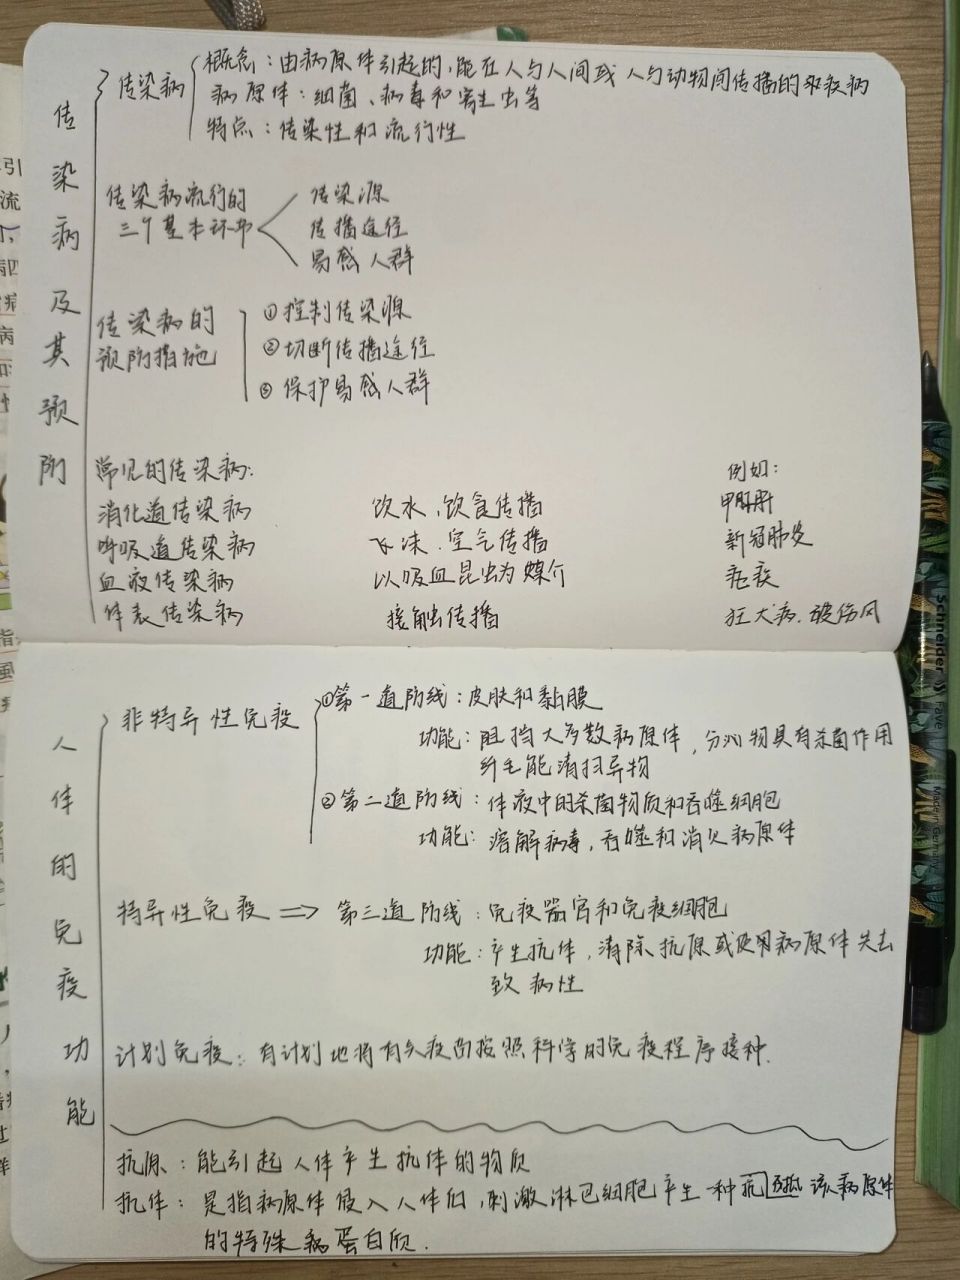 传染病及其预防
传染病
概念：由病原体引起的,能在人与人间或人与动物间传播的疾病
病原体：细菌、病毒和寄生虫等
特点：传染性和流行性
传染病流行的
三个基本环节
传染源
传播途径
易感人群
传染病的
预防措施
①控制传染源
②切断传播途径
③保护易感人群
常见的传染病：
例如：
消化道传染病 饮水、饮食传播 甲肝
呼吸道传染病 飞沫、空气传播 新冠肺炎
血液传染病 以吸血昆虫为媒介 疟疾
体表传染病 接触传播 狂犬病、破伤风
人体的免疫功能
非特异性免疫
①第一道防线：皮肤和黏膜
功能：阻挡大多数病原体，分泌物具有杀菌作用
纤毛能清扫异物
②第二道防线：体液中的杀菌物质和吞噬细胞
功能：溶解病毒，吞噬和消灭病原体
特异性免疫 ⇒ 第三道防线：免疫器官和免疫细胞
功能：产生抗体，清除抗原或使用病原体失去
致病性
计划免疫：有计划地将有关疫苗按照科学的免疫程序接种.
抗原：能引起人体产生抗体的物质
抗体：是指病原体侵入人体后,刺激淋巴细胞产生一种抗 该病原体
的特殊病蛋白质.
Schneider
Made in Germany